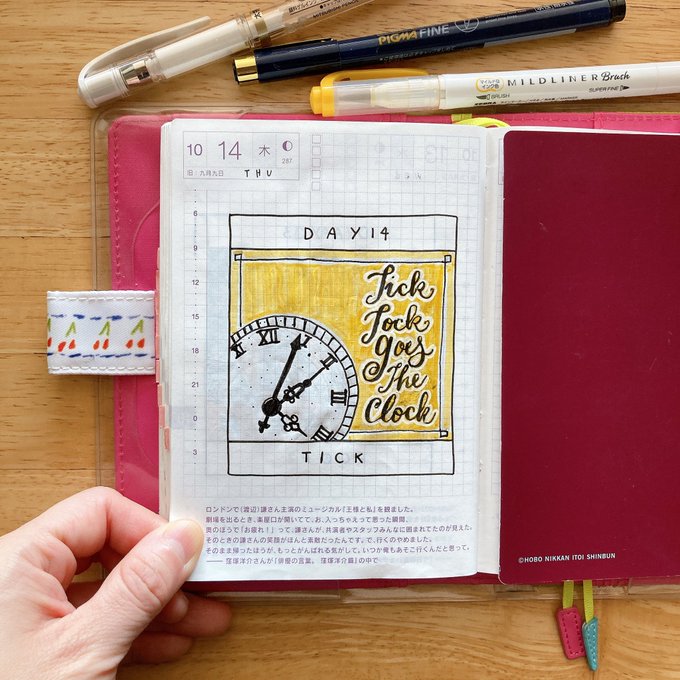 MITSUBISHI PENCIL
PIGMA FINE
マイルドな
インク色
MILDLINER Brush
BRUSH
SUPER FINE
ZEBRA
10 14 木
287
旧:九月九日
THU
6
9
12
15
18
21
0
3
DAY 14
Tick
Tock
goes
The
Clock
XI XII I II III
TICK
ロンドンで(渡辺)謙さん主演のミュージカル『王様と私』を観ました。
劇場を出るとき、楽屋口が開いてて、お、入っちゃえって思った瞬間、
奥のほうで「お疲れ!」って、謙さんが、共演者やスタッフみんなに囲まれてたのが見えた。
そのときの謙さんの笑顔がほんと素敵だったんです。で、行くのやめました。
そのまま帰ったほうが、もっとがんばれる気がして。いつか俺もあそこ行くんだと思って。
―― 窪塚洋介さんが『俳優の言葉。 窪塚洋介篇』の中で
©HOBO NIKKAN ITOI SHINBUN